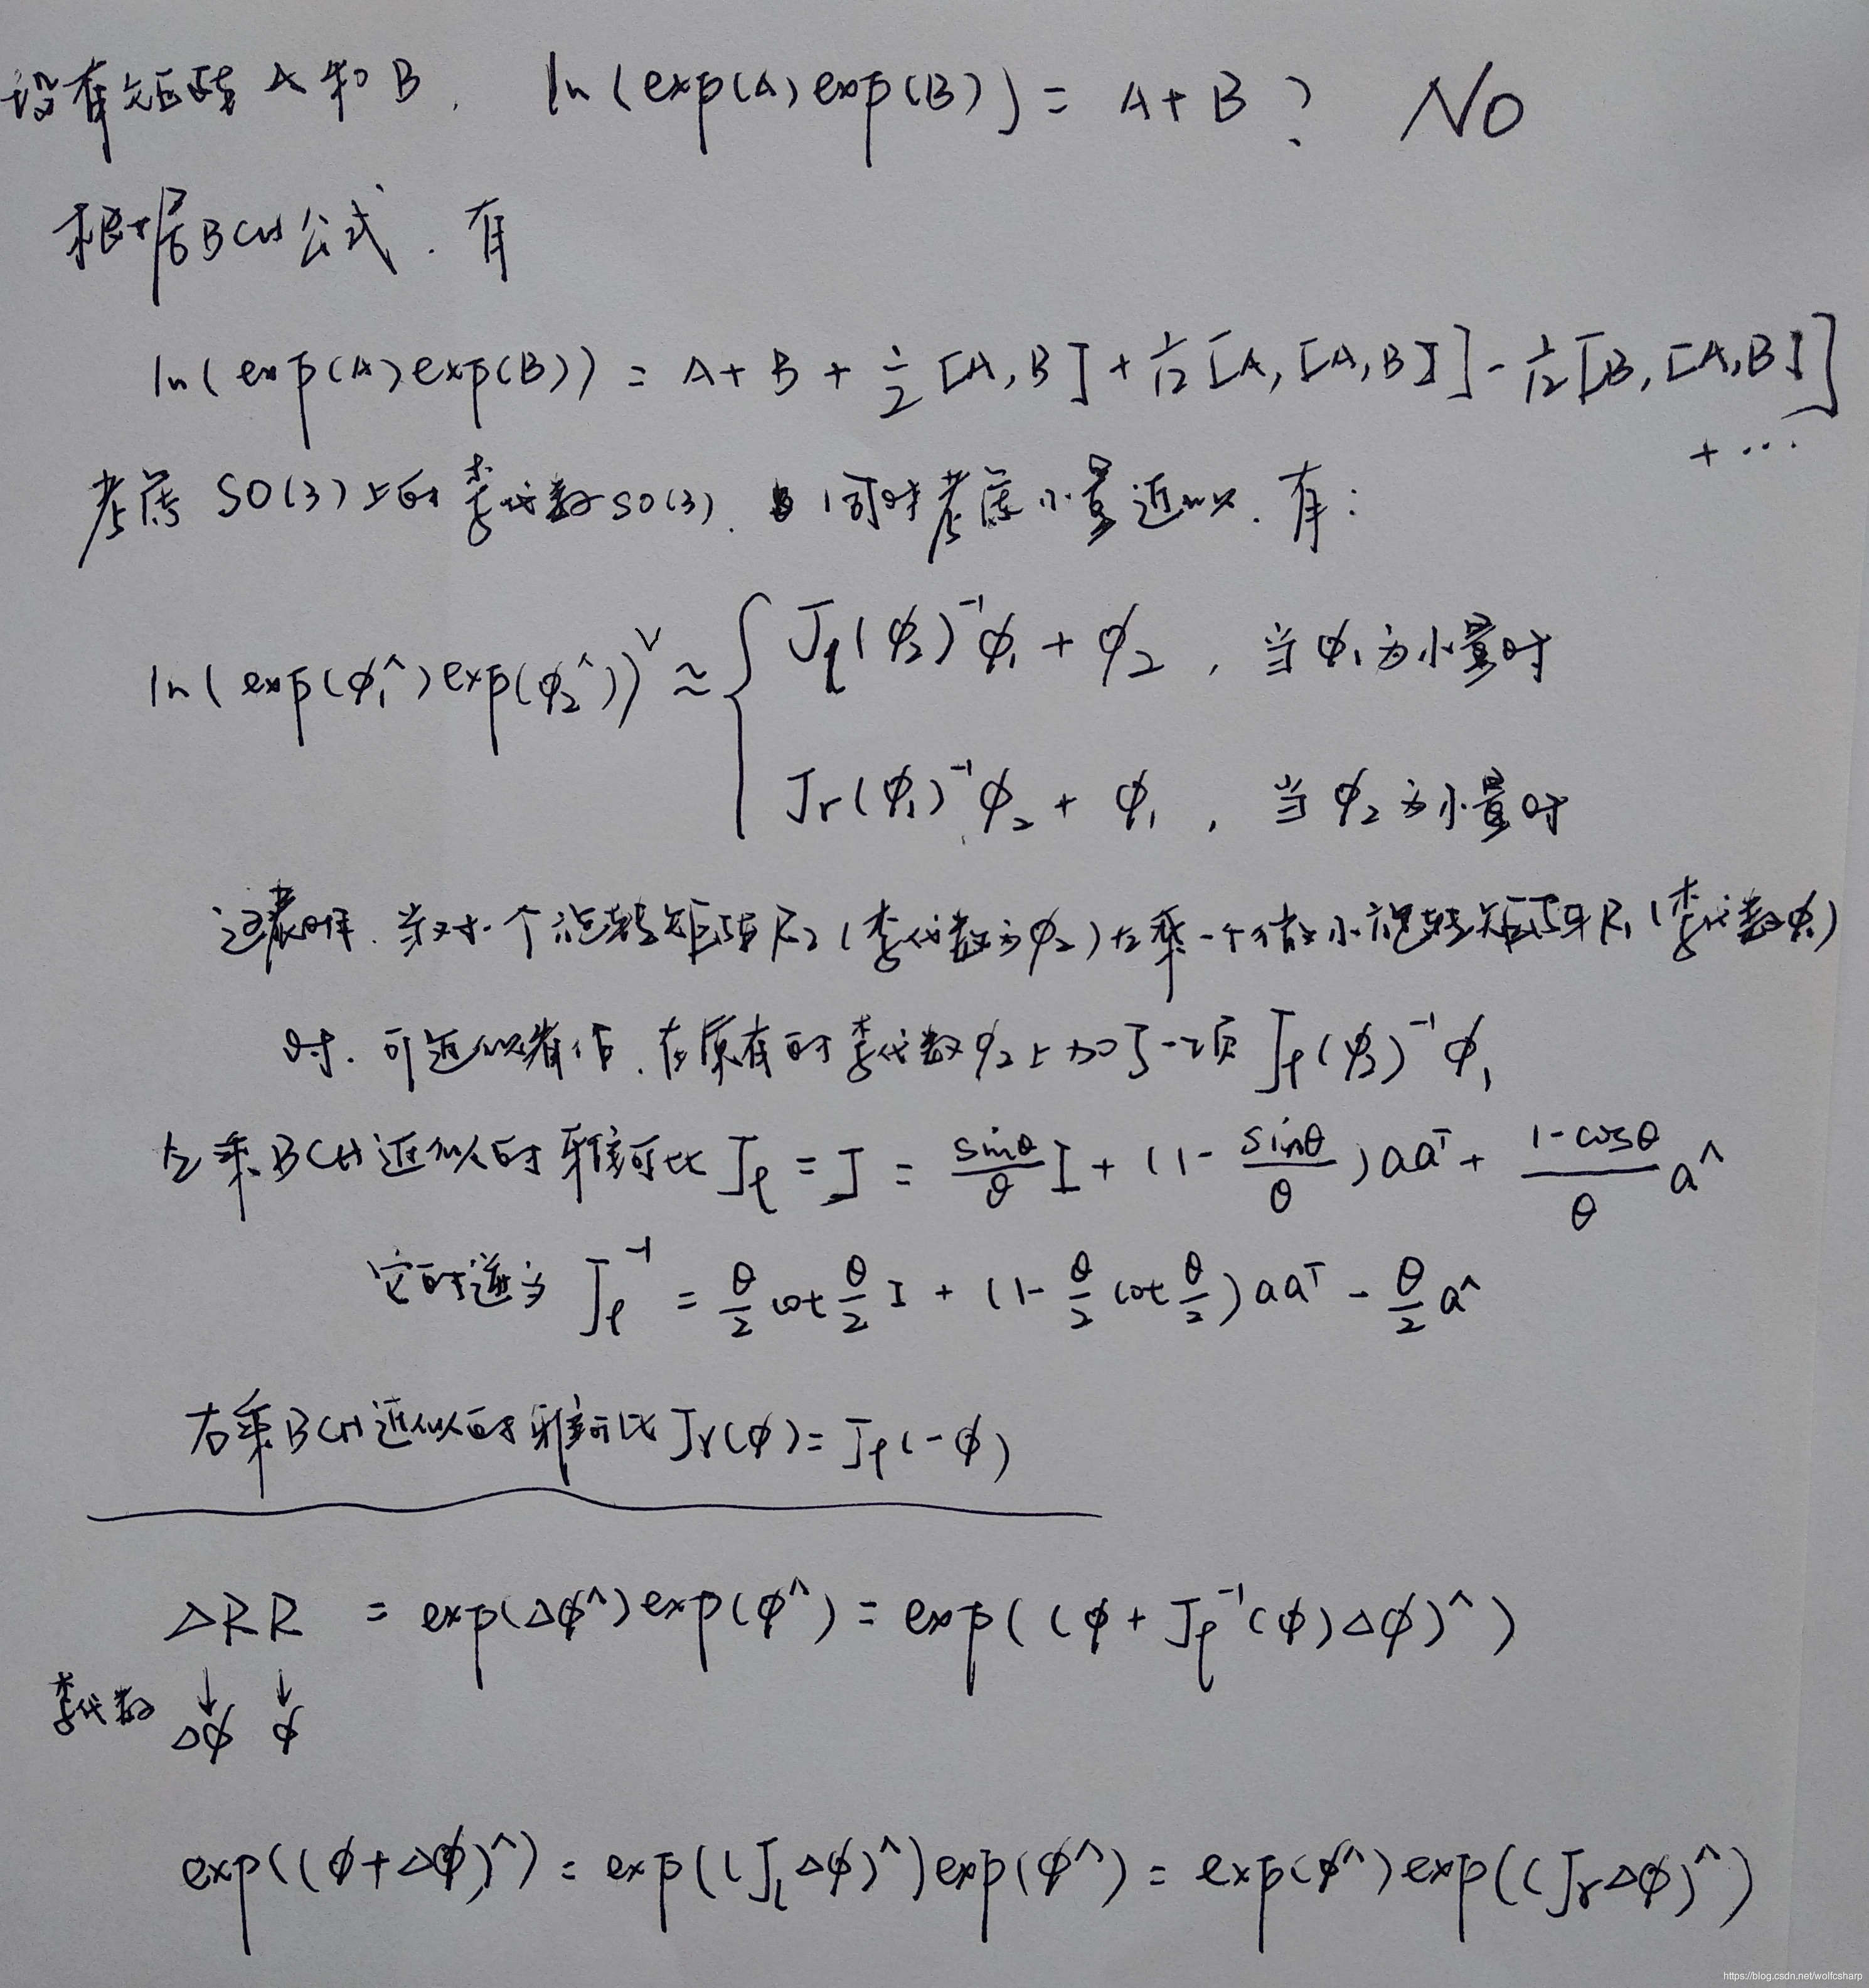 设有矩阵 A 和 B. ln(exp(A)exp(B)) = A+B ? NO
根据BCH公式. 有
ln(exp(A)exp(B)) = A+B+½[A,B]+1/12[A,[A,B]]-1/12[B,[A,B]]
+ ...
考虑 SO(3)上的李代数so(3). 同时考虑小量近似. 有:
ln(exp(φ₁^)exp(φ₂^))^∨ ≈ { J_l(φ₂)⁻¹φ₁ + φ₂ , 当φ₁为小量时
J_r(φ₁)⁻¹φ₂ + φ₁ , 当φ₂为小量时
这表明. 当对一个旋转矩阵R₂(李代数为φ₂)左乘一个微小旋转矩阵R₁(李代数φ₁)
时. 可近似看作. 在原有的李代数φ₂上加了一项 J_l(φ₂)⁻¹φ₁
左乘BCH近似的雅可比 J_l = J = sinθ/θ I + (1 - sinθ/θ)aaᵀ + (1-cosθ)/θ a^
它的逆为 J_l⁻¹ = θ/2 cot θ/2 I + (1 - θ/2 cot θ/2)aaᵀ - θ/2 a^
右乘BCH近似的雅可比 J_r(φ) = J_l(-φ)
ΔR R = exp(Δφ^)exp(φ^) = exp((φ + J_l⁻¹(φ)Δφ)^)
↓ ↓
李代数 Δφ φ
exp((φ+Δφ)^) = exp((J_lΔφ)^)exp(φ^) = exp(φ^)exp((J_rΔφ)^)
https://blog.csdn.net/wolfcsharp